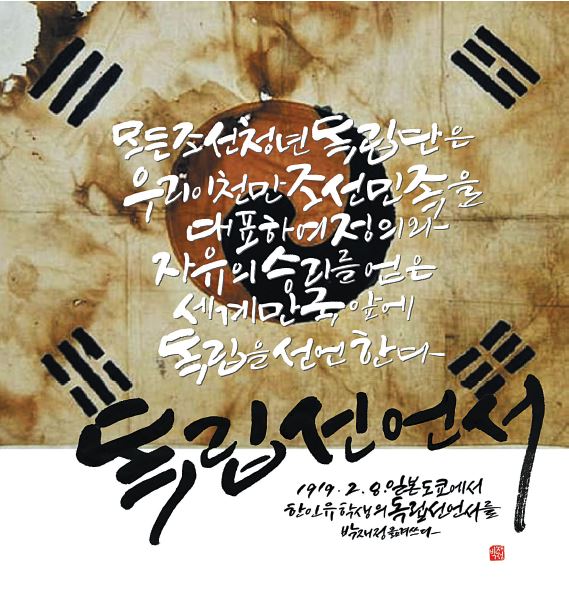 모든 조선청년 독립단은
우리 이천만 조선민족을
대표하여 정의와
자유의 승리를 얻은
세계만국 앞에
독립을 선언한다
독립선언서
1919. 2. 8. 일본도쿄에서
한인유학생의 독립선언서를
박재정 쓰다